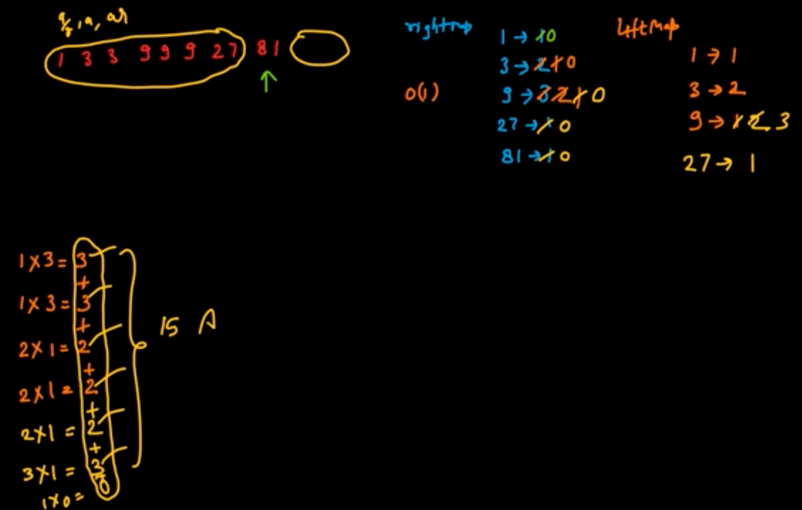 a/r, a, ar
1 3 3 9 9 9 27 81
right map
1 → 1 0
3 → 2 1 0
O(1)
9 → 3 2 1 0
27 → 1 0
81 → 1 0
Left Map
1 → 1
3 → 2
9 → 1 2 3
27 → 1
1 x 3 = 3
+
1 x 3 = 3
+
2 x 1 = 2
+
2 x 1 = 2
+
2 x 1 = 2
+
3 x 1 = 3
1 x 0 = 0
15 A